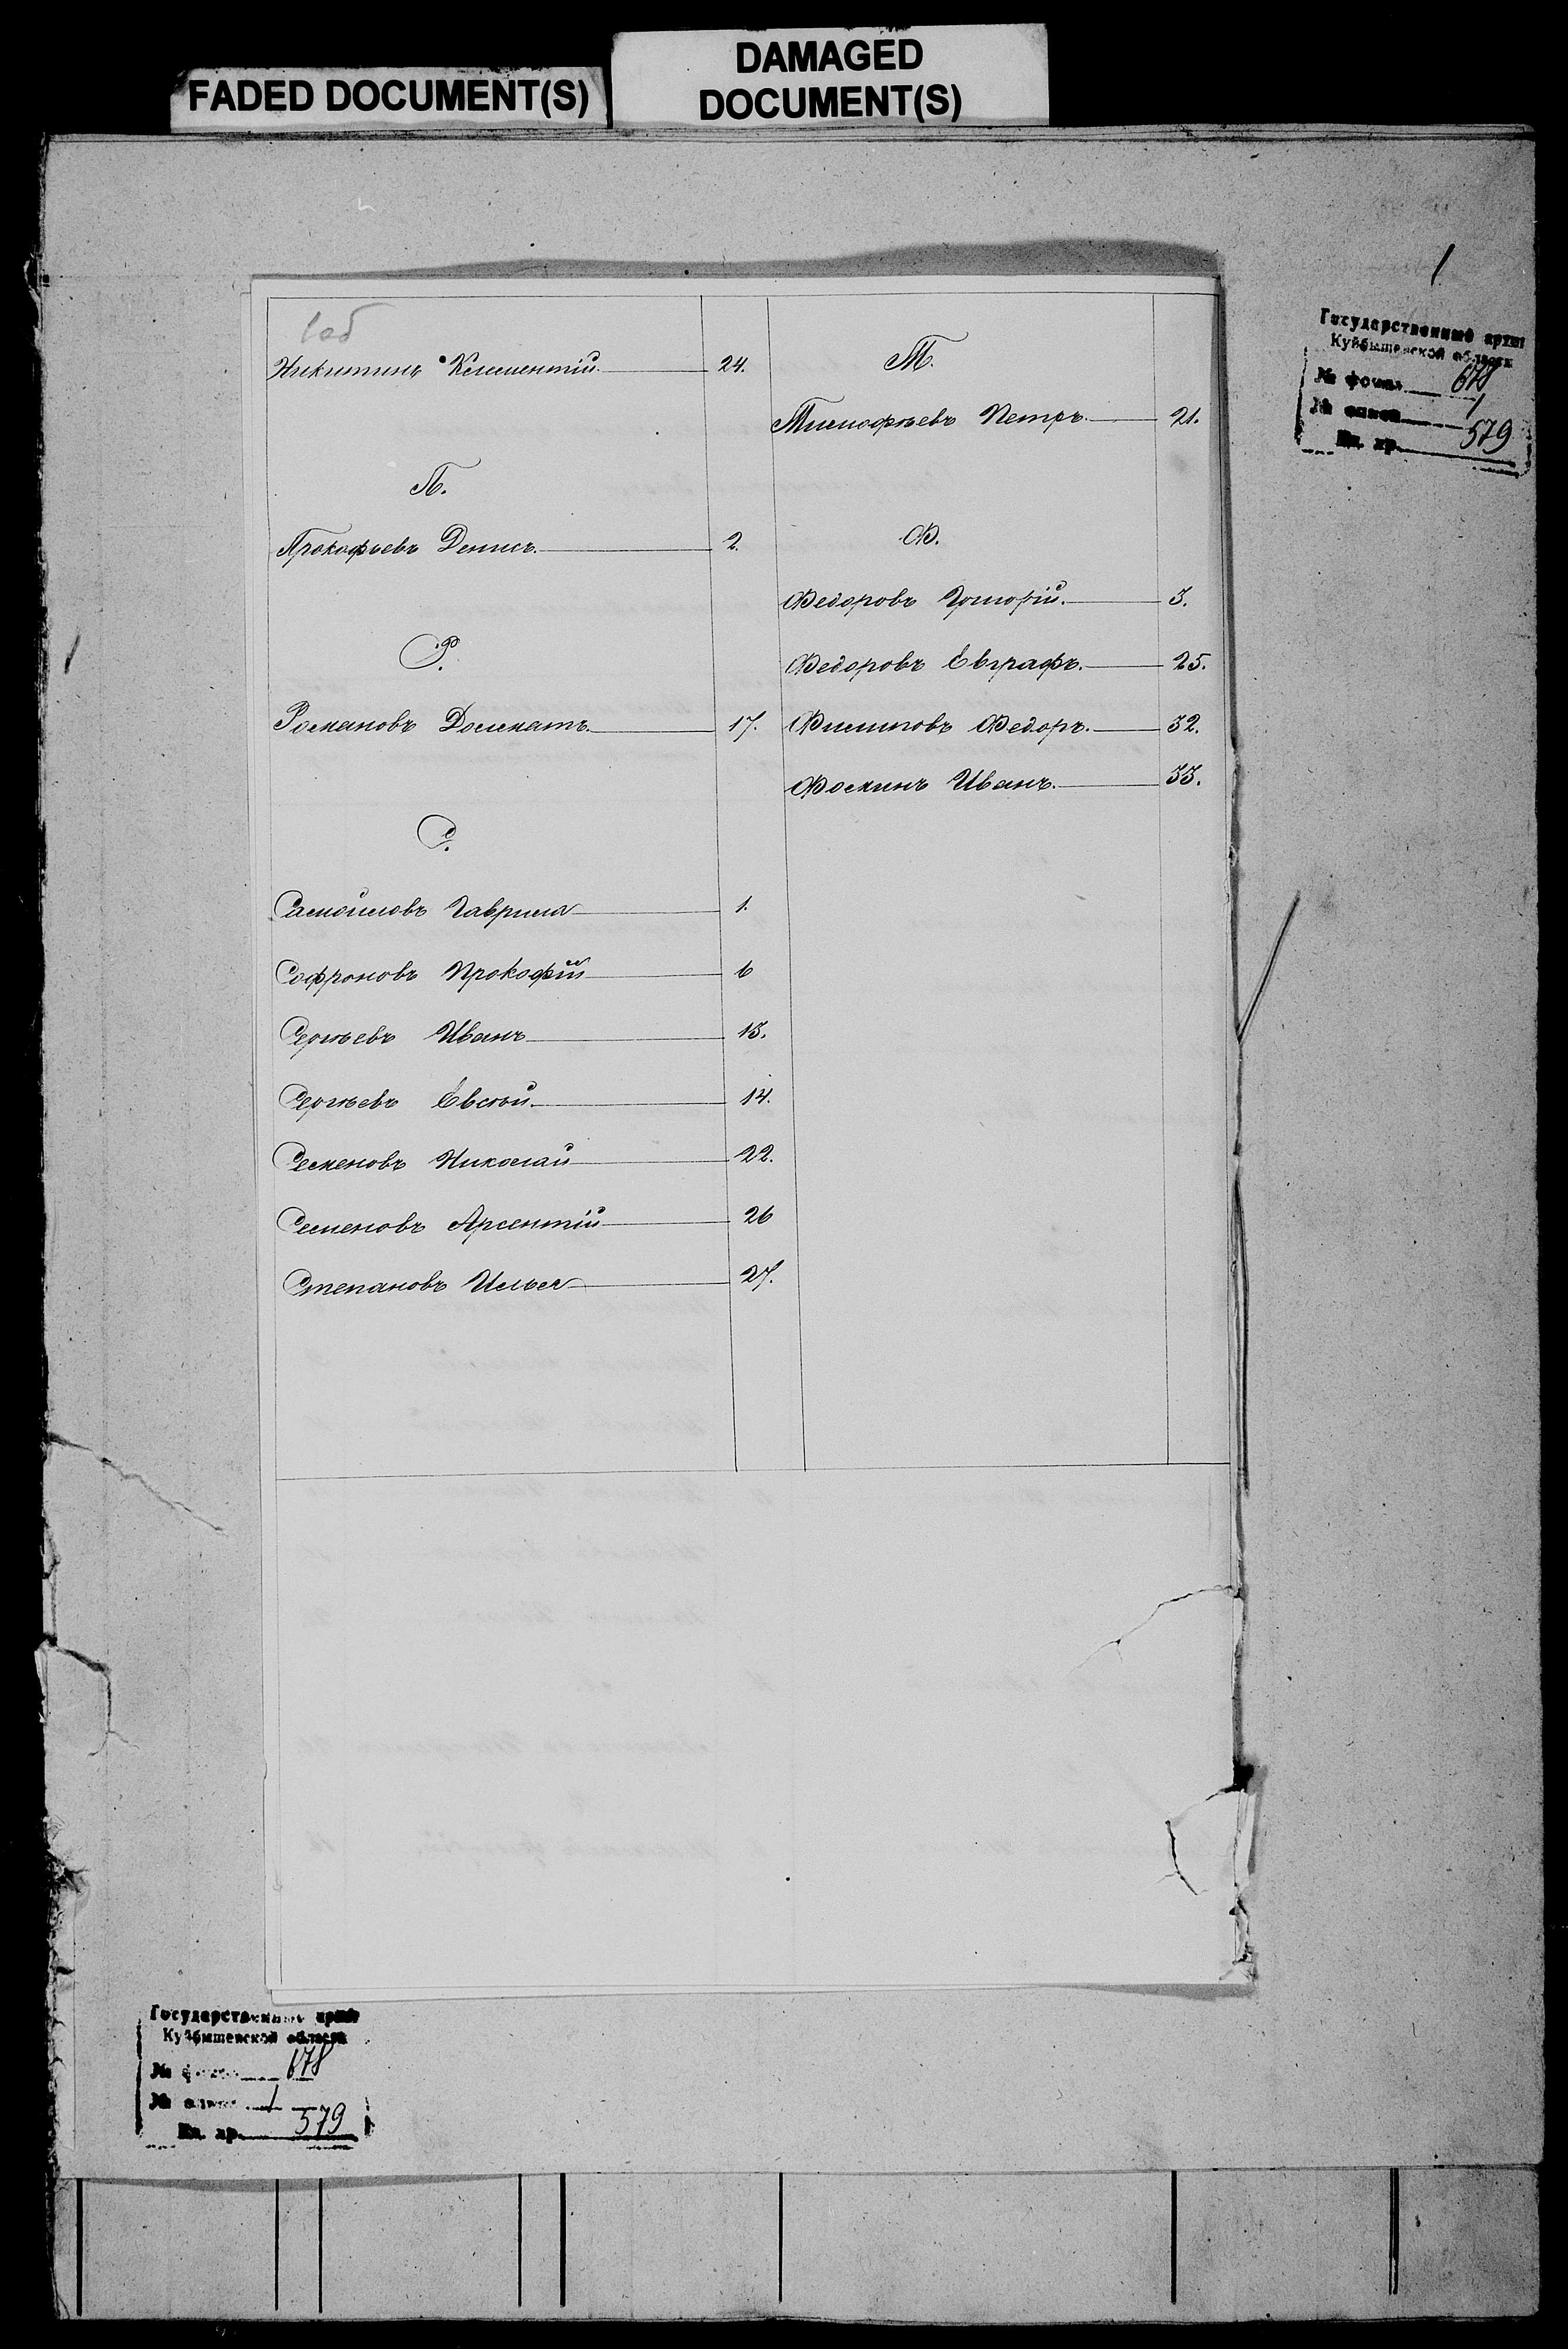 FADED DOCUMENT(S)
DAMAGED
DOCUMENT(S)
1
Государственный архив
Куйбышевской области
№ фонда 678
№ описи 1
Ед. хр. 579
1об
Никитинъ Клементій 24.
П.
Прокофьевъ Денисъ. 2.
Р.
Романовъ 17.
С.
Самойловъ Гаврила 1.
Софроновъ Прокофій 6
Сергѣевъ Иванъ 13.
Сергѣевъ Евсѣй. 14.
Семеновъ Николай 22.
Семеновъ Арсентій 26
Степановъ Илья 27.
Т.
Тимофѣевъ Петръ. 21.
Ф.
Федоровъ Григорій. 3.
Федоровъ Евграфъ. 25.
Филиповъ Федоръ. 32.
Фоминъ Иванъ. 33.
Государственный архив
Куйбышевской области
№ фонда 678
№ описи 1
Ед. хр. 579